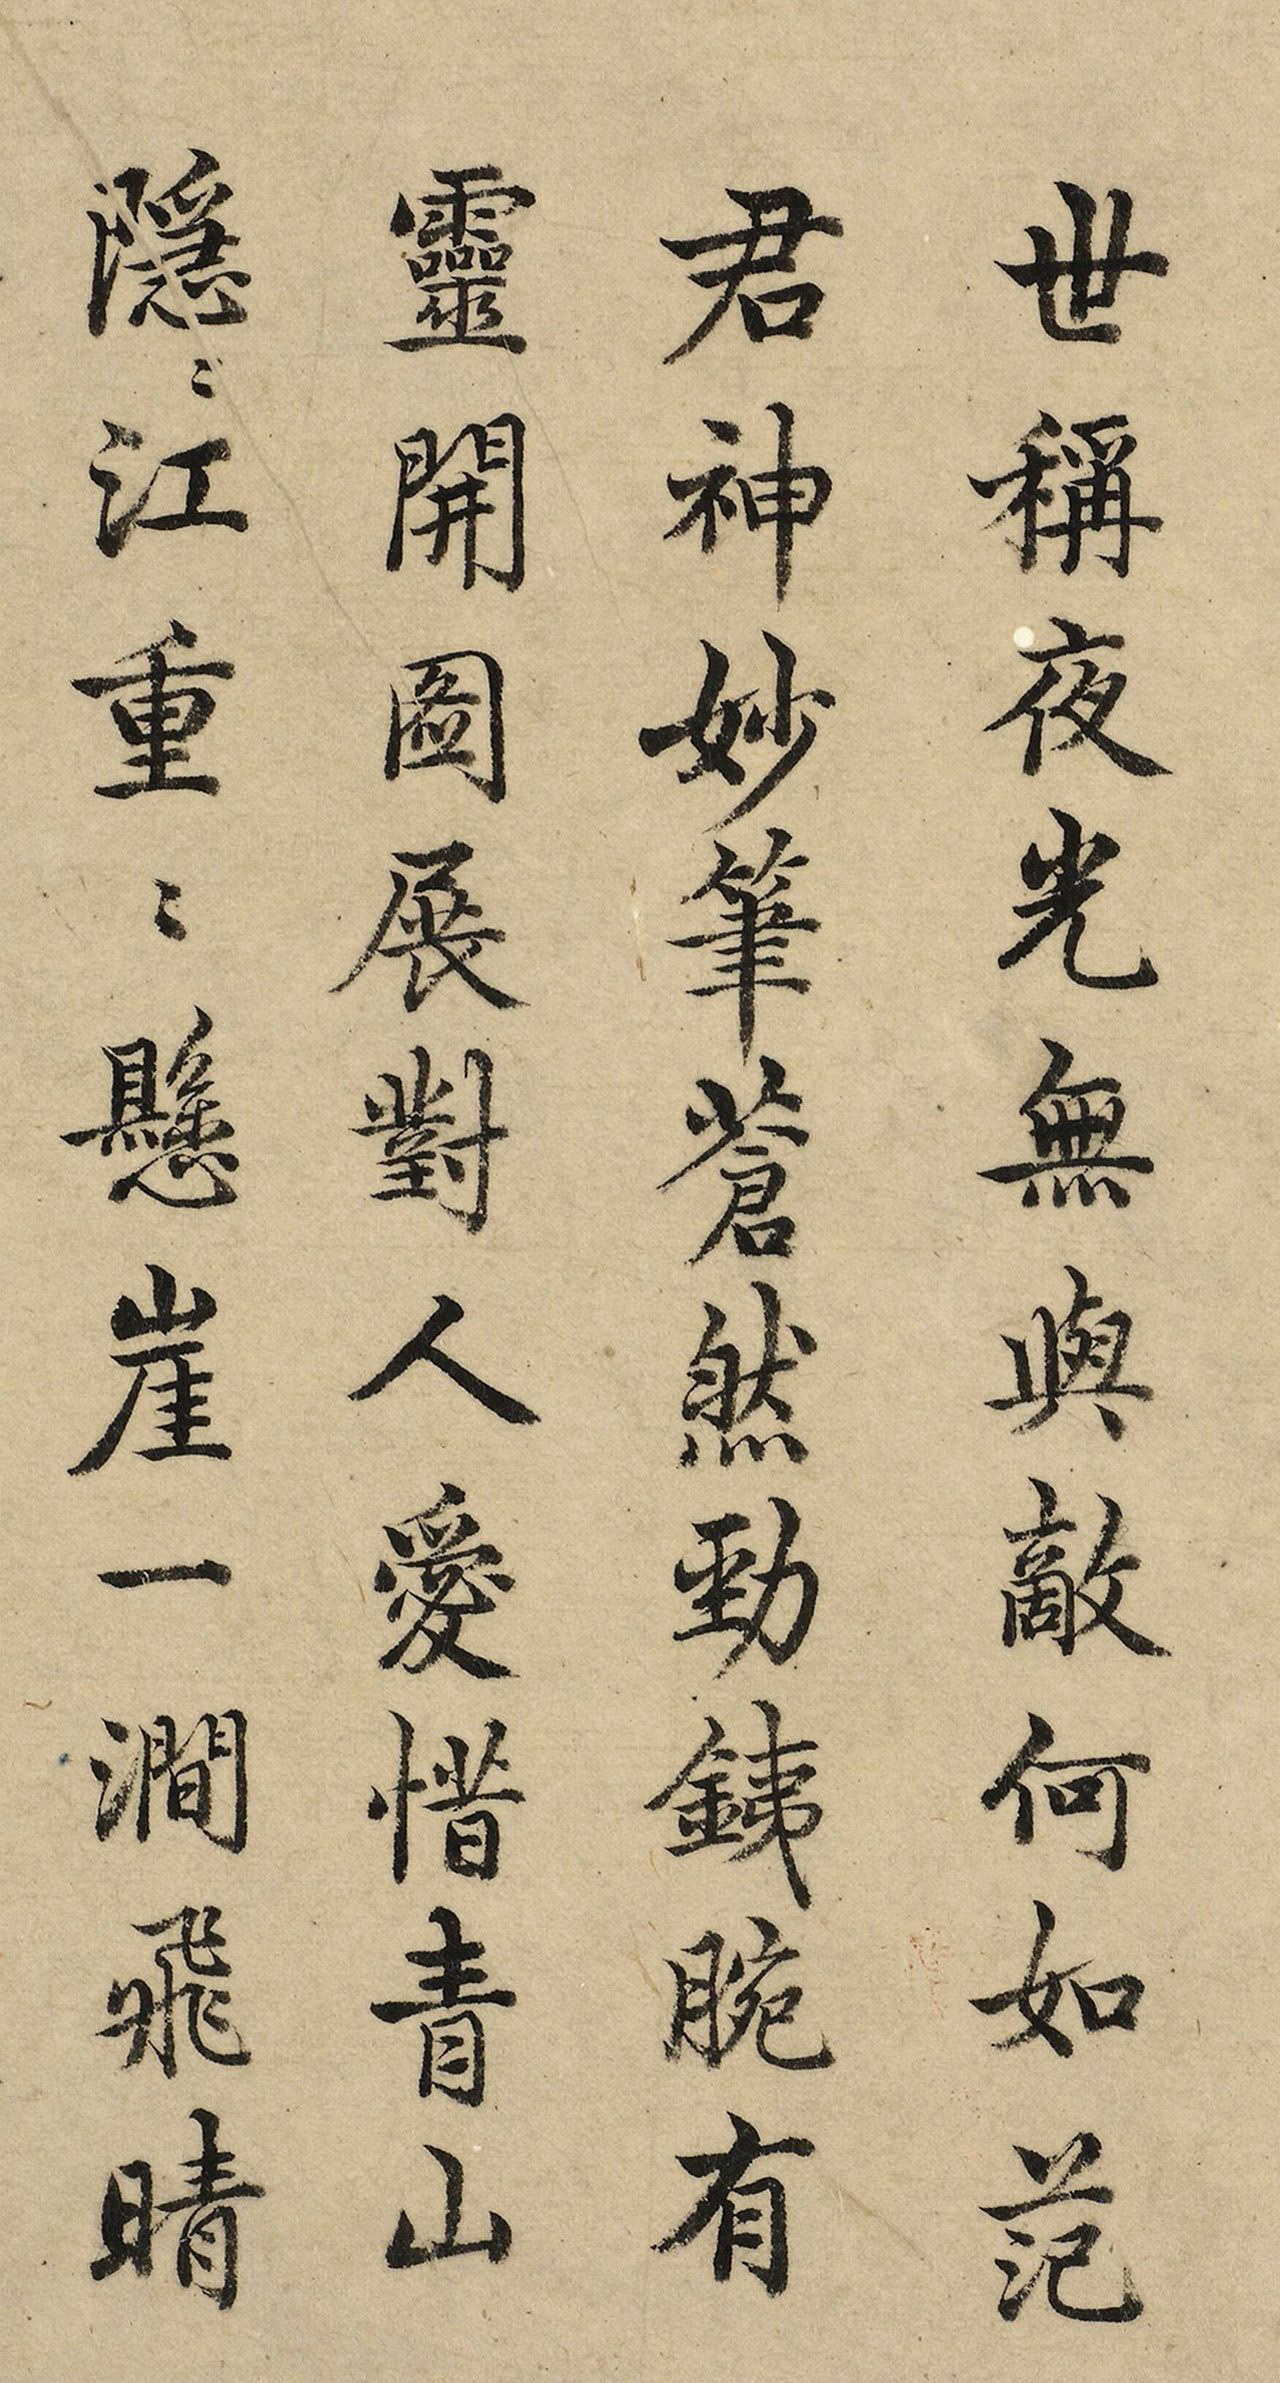 世稱夜光無與敵何如范
君神妙筆蒼然勁銕腕有
靈開圖展對人愛惜青山
隱〻江重〻懸崖一澗飛晴